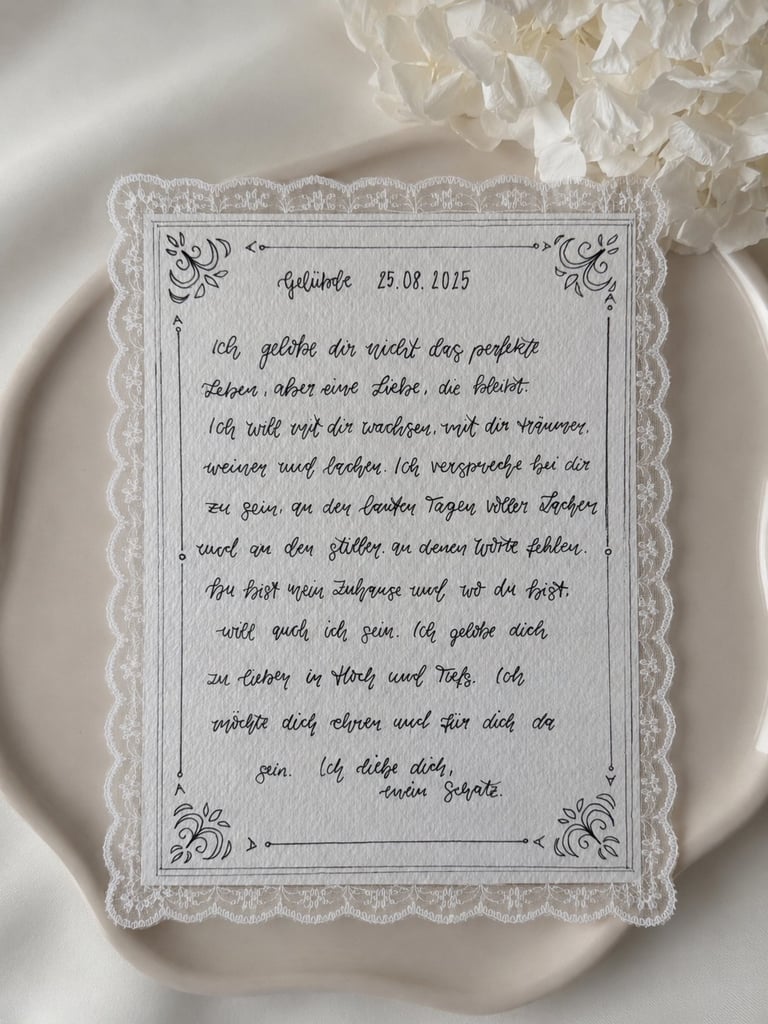 Gelübde 25.08.2025
Ich gelobe dir nicht das perfekte
Leben, aber eine Liebe, die bleibt.
Ich will mit dir wachsen, mit dir träumen,
weinen und lachen. Ich verspreche bei dir
zu sein, an den lauten Tagen voller Lachen
und an den stillen, an denen Worte fehlen.
Du bist mein Zuhause und wo du bist,
will auch ich sein. Ich gelobe dich
zu lieben in Hoch und Tiefs. Ich
möchte dich ehren und für dich da
sein. Ich liebe dich,
mein Schatz.